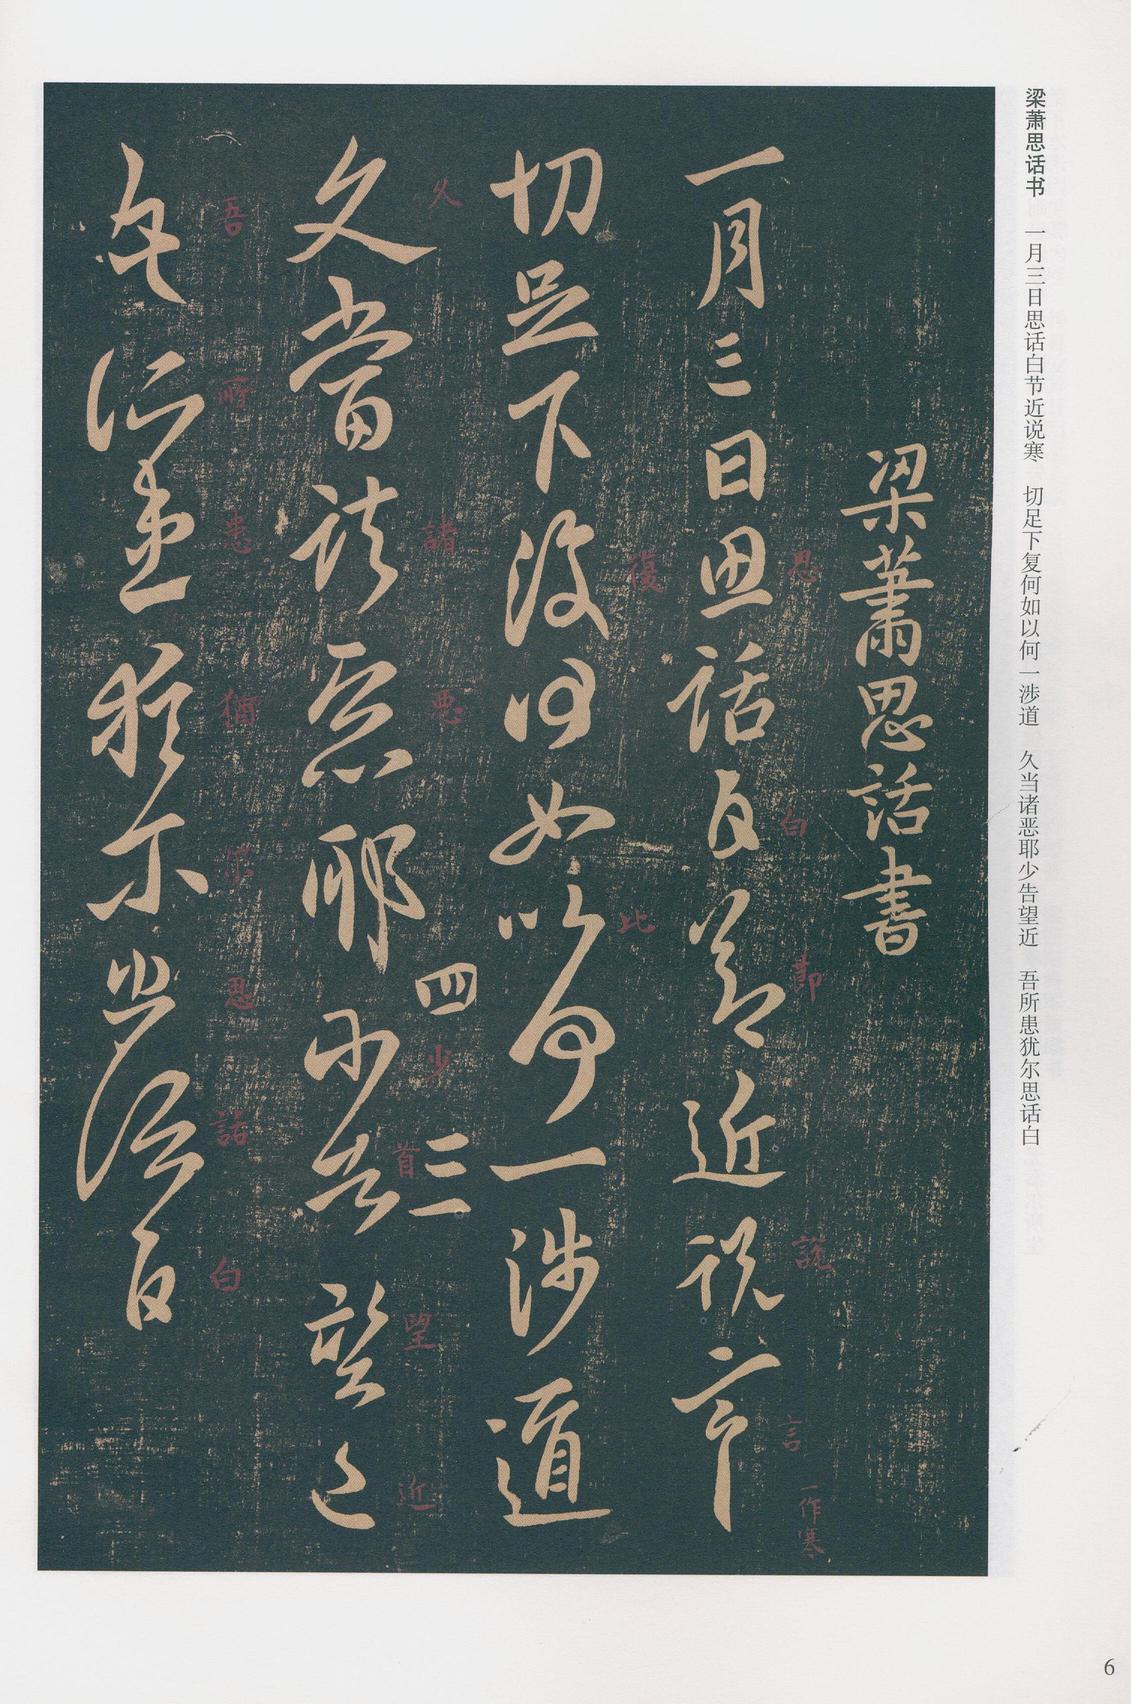 梁萧思话书 一月三日思话白节近说寒 切足下复何如以何一涉道 久当诸恶耶少告望近 吾所患犹尔思话白
梁蕭思話書
一月三日思話白節近説言
思
白
節
説
言
一作寒
切足下復何如以何一涉道
復
比
久當諸惡耶少告望近
久
諸
悪
四
少
三一
首
望
近
吾所患猶尔思話白
吾
所
患
猶
尔
思
話
白
6